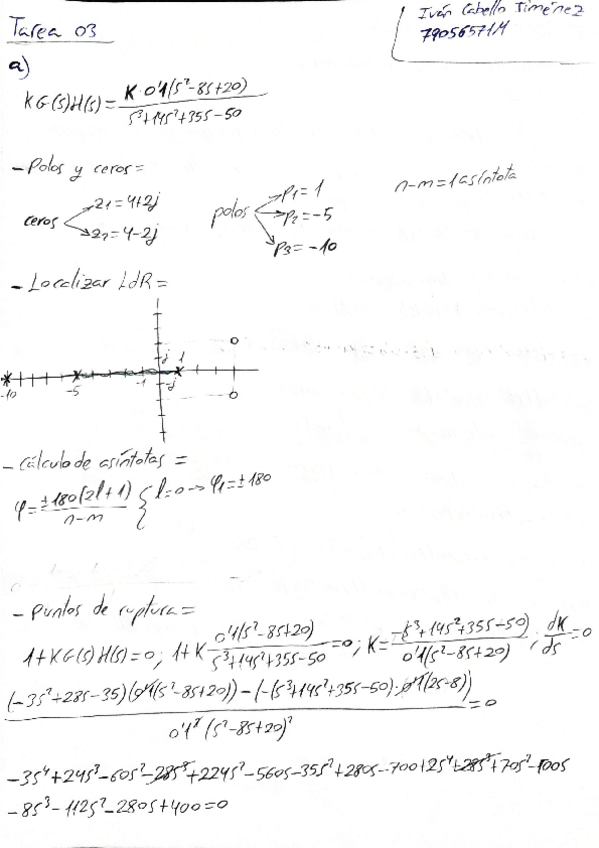 Iván Cabello Jiménez
79056571M
Tarea 03
a)
KG(s)H(s)= K 0'1(s²-8s+20) / s³+14s²+35s-50
- Polos y ceros=
ceros z1=4+2j
z2=4-2j
polos p1=1
p2=-5
p3=-10
n-m=1 asíntota
- Localizar LdR=
j 1
-10 -5 -1 -j
- Cálculo de asíntotas =
φ= ±180(2l+1) / n-m { l=0 → φ1=±180
- Puntos de ruptura=
1+KG(s)H(s)=0; 1+K 0'1(s²-8s+20) / s³+14s²+35s-50 =0; K= -(s³+14s²+35s-50) / 0'1(s²-8s+20) ; dK/ds=0
(-3s²+28s-35)(0'1(s²-8s+20))-(-(s³+14s²+35s-50)·0'1(2s-8)) / 0'1²(s²-8s+20)² =0
-3s⁴+24s³-60s²-28s³+224s²-560s-35s²+280s-700+2s⁴+28s³+70s²-100s
-8s³-112s²-280s+400=0